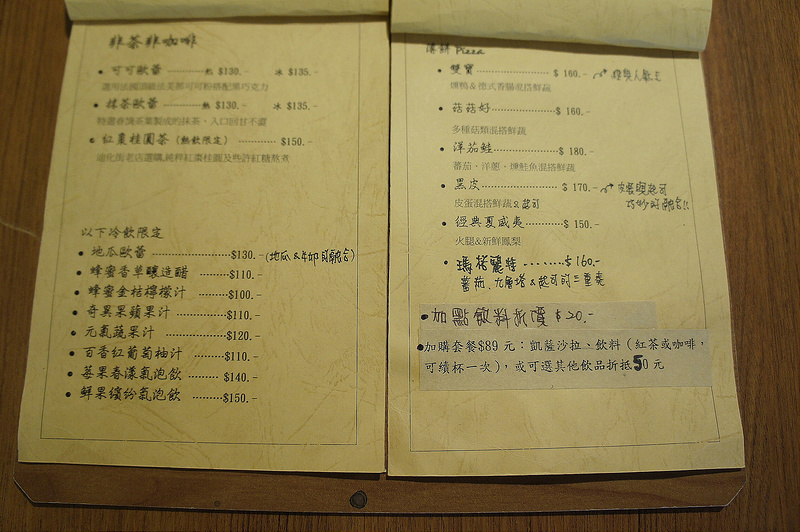 非茶非咖啡
• 可可歐蕾 ………… 熱 $130.- 冰 $135.-
選用法國頂級法芙那可可粉搭配黑巧克力
• 抹茶歐蕾 ………… 熱 $130.- 冰 $135.-
特選春漾茶葉製成的抹茶、入口回甘不澀
• 紅棗桂圓茶 (熱飲限定) ………… $150.-
迪化街老店選購,純粹紅棗桂圓及些許紅糖熬煮
以下冷飲限定
• 地瓜歐蕾 ………… $130.- (地瓜&牛奶的融合)
• 蜂蜜香草釀造醋 ……… $110.-
• 蜂蜜金桔檸檬汁 ……… $100.-
• 奇異果蘋果汁 ……… $110.-
• 元氣蔬果汁 ……… $120.-
• 百香紅葡萄柚汁 ……… $110.-
• 莓果春漾氣泡飲 ……… $140.-
• 鮮果繽紛氣泡飲 ……… $150.-
薄餅 Pizza
• 雙寶 ………… $160.-
燻鴨&德式香腸混搭鮮蔬
• 菇菇好 ………… $160.-
多種菇類混搭鮮蔬
• 洋茄鮭 ………… $180.-
蕃茄、洋蔥、燻鮭魚混搭鮮蔬
• 黑皮 ………… $170.-
皮蛋混搭鮮蔬&起司
• 經典夏威夷 ………… $150.-
火腿&新鮮鳳梨
• 瑪格麗特 ……… $160.-
蕃茄、九層塔&起司的三重奏
• 加點飲料折價 $20.-
• 加購套餐$89 元：凱薩沙拉、飲料（紅茶或咖啡，
可續杯一次），或可選其他飲品折抵50 元